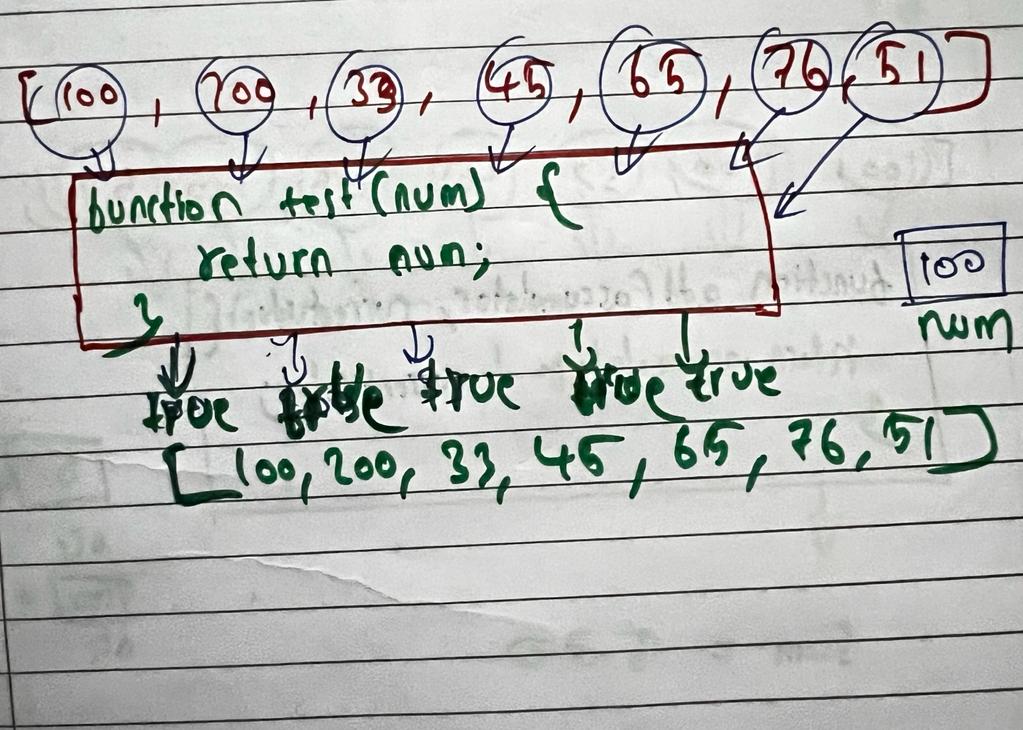 [100, 200, 33, 45, 65, 76, 51]
function test(num) {
return num;
}
100
num
true true true true true
[100, 200, 33, 45, 65, 76, 51]